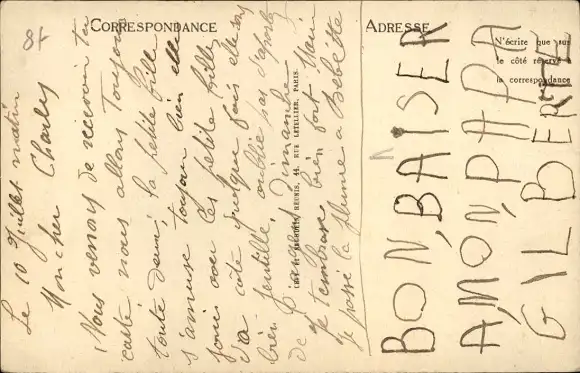 87
CORRESPONDANCE
ADRESSE
N'écrire que sur
le côté réservé à
la correspondance
Le 10 Juillet matin
Mon cher Charles
Nous venons de recevoir ta
carte nous allons toujours
toute deux, la petite fille
s'amuse toujour bien elle
joue avec les petite fille
d'a côte quelque fois elle est
bien gentille, oublie pas d'
de Dimanche
je t'embrasse bien fort Marie
Je passe la plume a Bébette
RÉUNIS, 44, RUE LETELLIER, PARIS
BON, BAISER
A, MON, PAPA
GILBERTE